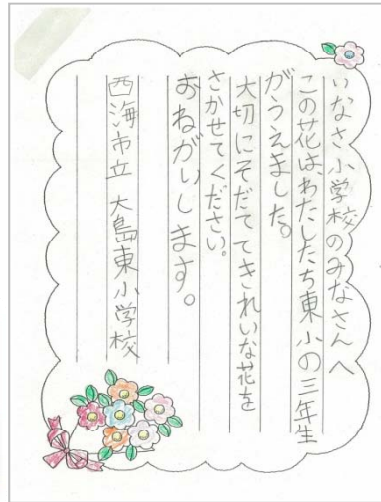 いなさ小学校のみなさんへ
この花は、わたしたち東小の三年生
がうえました。
大切にそだててきれいな花を
さかせてください。
おねがいします。
西海市立 大島東小学校